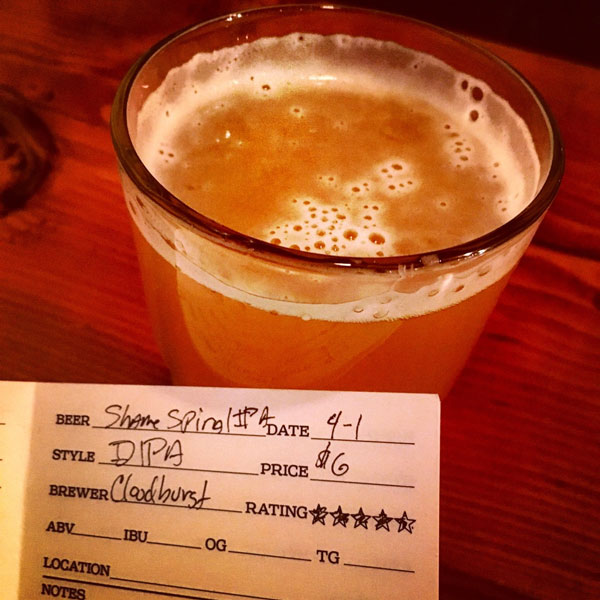 BEER Shame Spiral IIPA DATE 4-1
STYLE DIPA PRICE $6
BREWER Cloudburst RATING
ABV IBU OG TG
LOCATION
NOTES